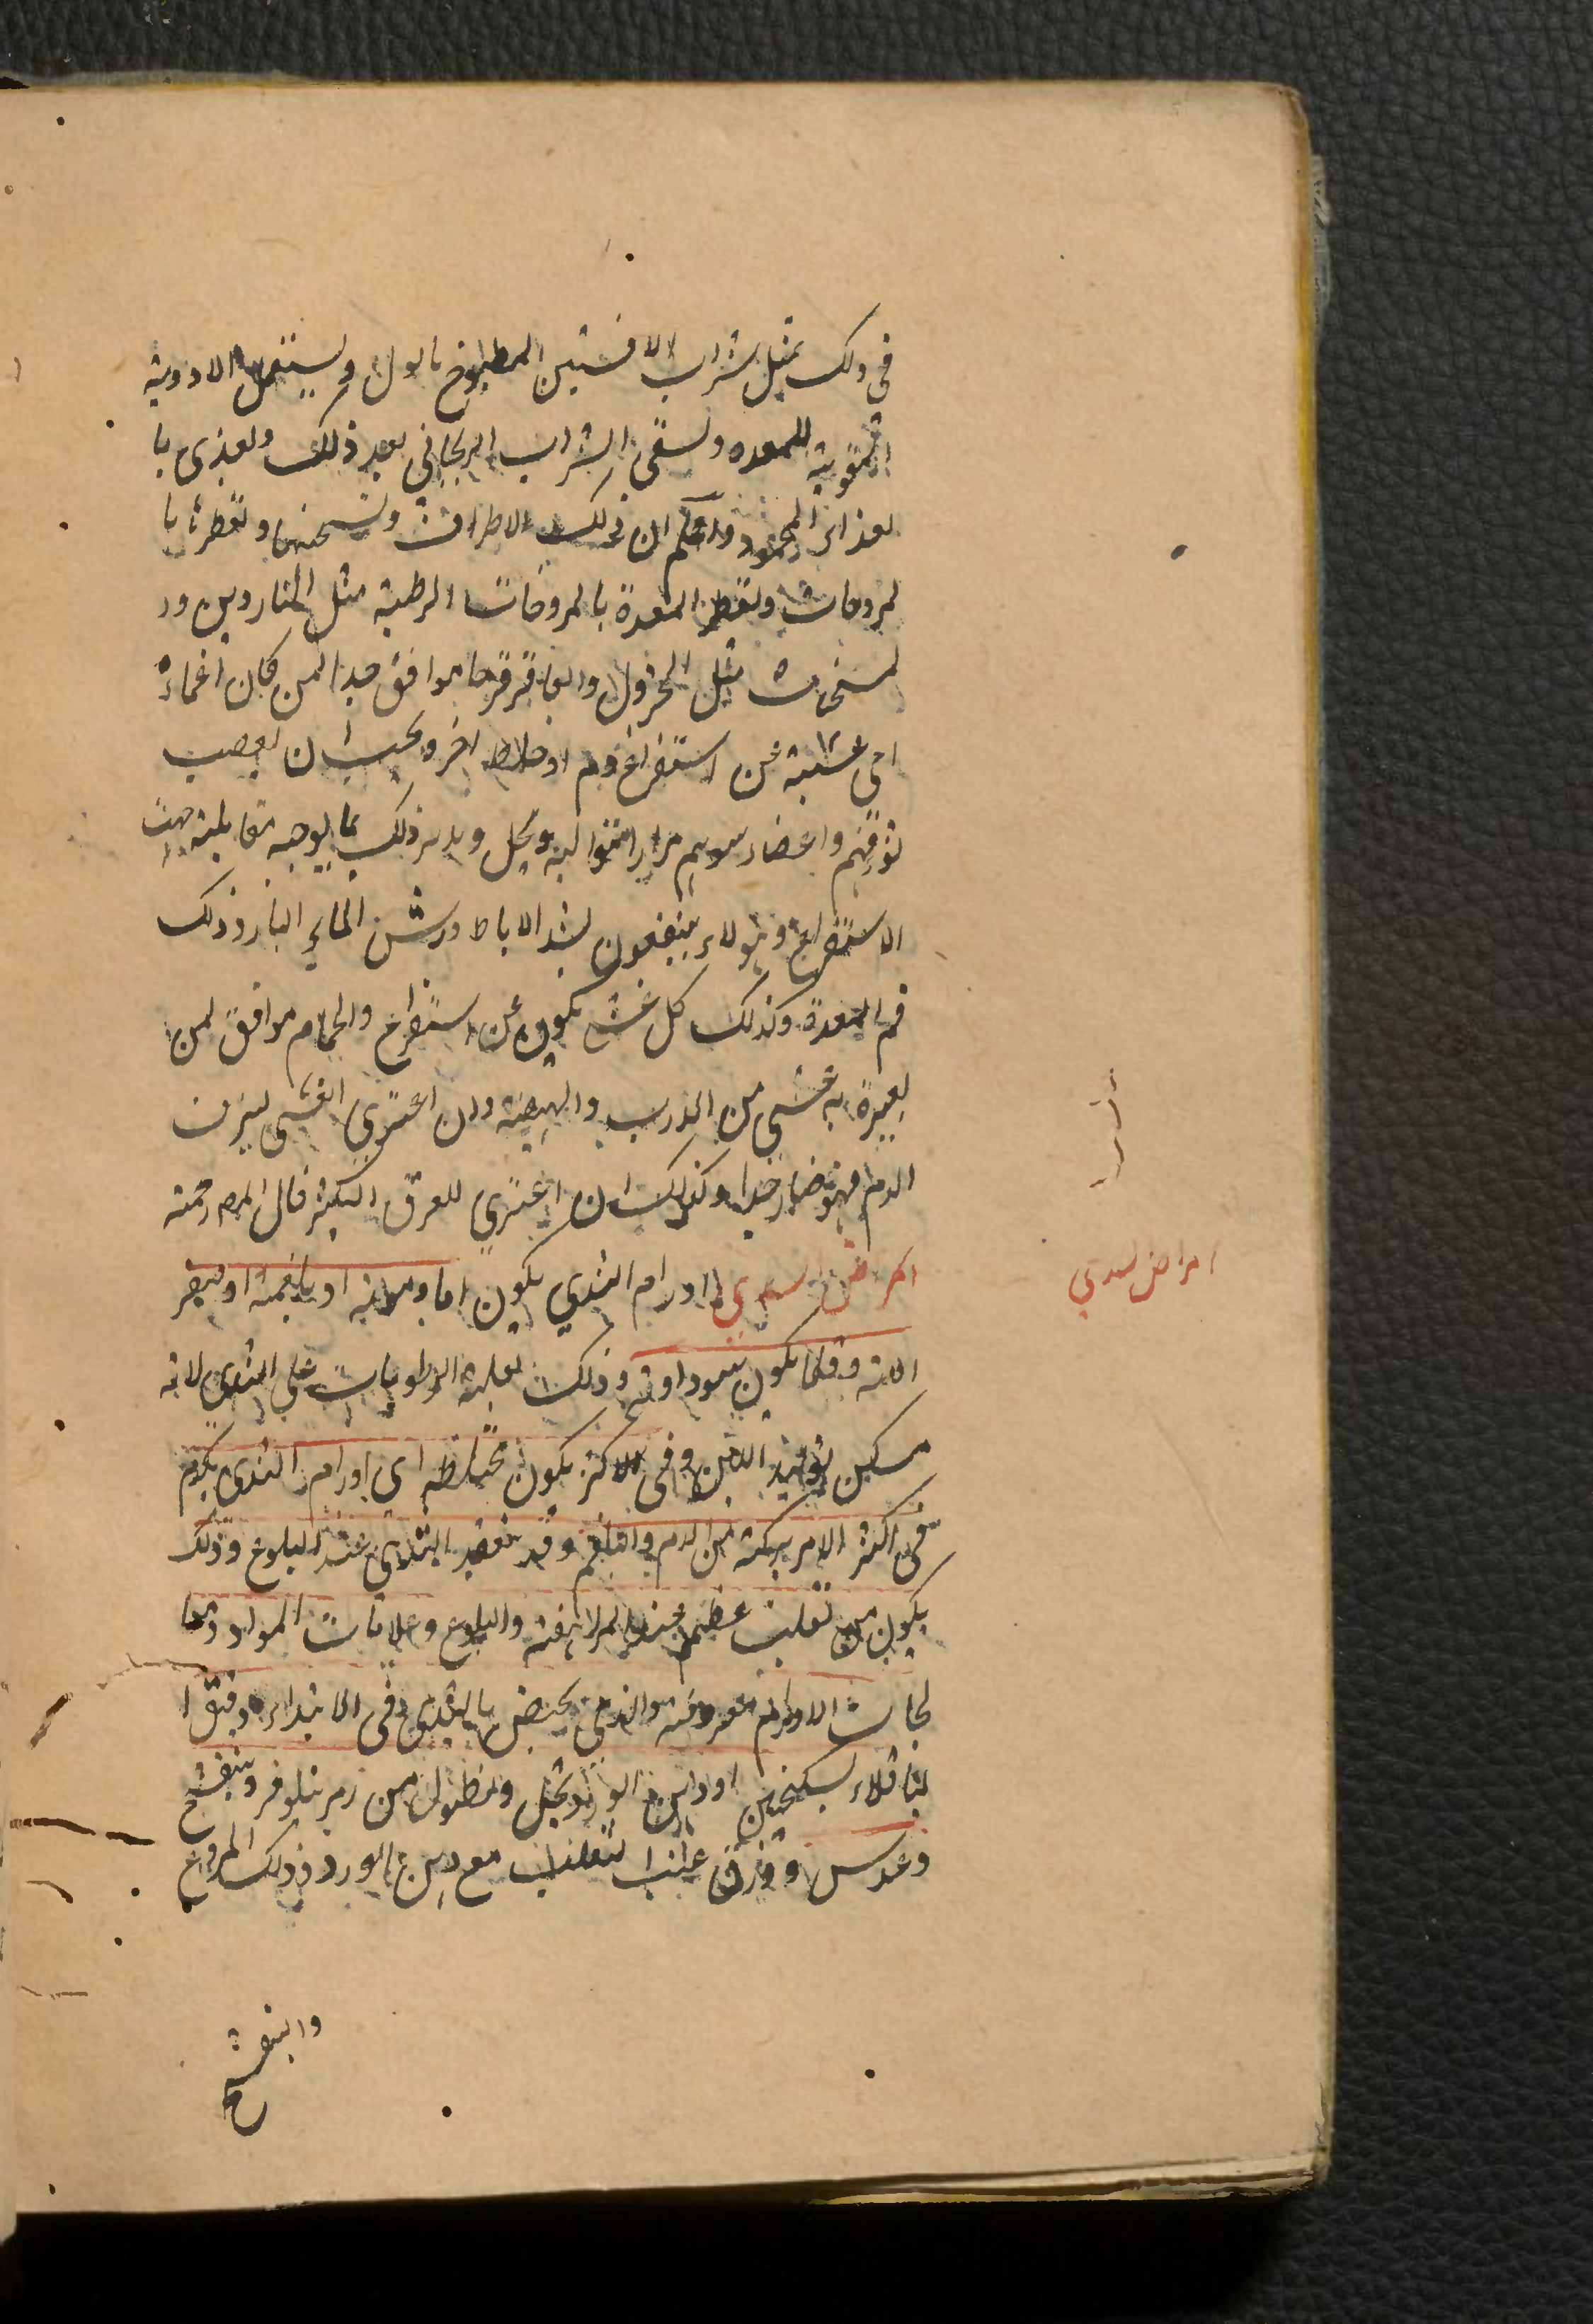 فى ذلك بمثل شراب الافسنتين المطبوخ بالول ويستعمل الادوية
المقوية للمعده ويسقى الشراب الريحاني بعد ذلك ويغذى با
لغذاء المحمود واعلم ان ذلك الاطراف وتسخنها وتعطرنا با
لمروخات وتعطر المعدة بالمروخات الرطبة مثل الناردين ور
لمسخنات مثل الخردل والعاقرقرحا موافق جدا لمن كان اغماءه
اى غشيه عن استفراغ دم او خلاط اخر ويجب ان يعصب
سوقهم واعضاد سويهم مرارا متواليه ويحل ويدبر ذلك بما يوجبه مقابلة جهت
الاستفراغ وهولاء ينتفعون بشد الاباط ورش الماء البارد وذلك
فم المعدة وكذلك كل غشى يكون عن استفراغ والحمام موافق لمن
يعيده به غشى من الذرب والهيضة وان اعترى الغشى لنزف
الدم فهو ضار جدا وكذلك ان اعترى للعرق الكثير قال المص رحمه
امراض الثدى اورام الثدي يكون اما دموية او بلغمية او صفر
الاية وقلما يكون سوداوية وذلك لغلبة الرطوبات على الثدى لانه
مسكن توليد اللبن وفى الاكثر يكون مختلطه اى اورام الثدى يكوم
فى اكثر الامر مركبة من الدم والبلغم وقد تعقد الثدي عند البلوغ وذلك
يكون من تفلت عظيم عند المراهقة والبلوغ وعلامات المواد ومعا
لجات الاورام معروفة والذى يختص بالثدى فى الابتداء دقيق ا
لباقلاء بسكنجبين او دهن الورد وبخل ونطول من زهر نيلوفر وبنفسج
وعدس وورق عنب الثعلب مع دهن الورد وذلك المروخ
والبنفسج
امراض لسدي